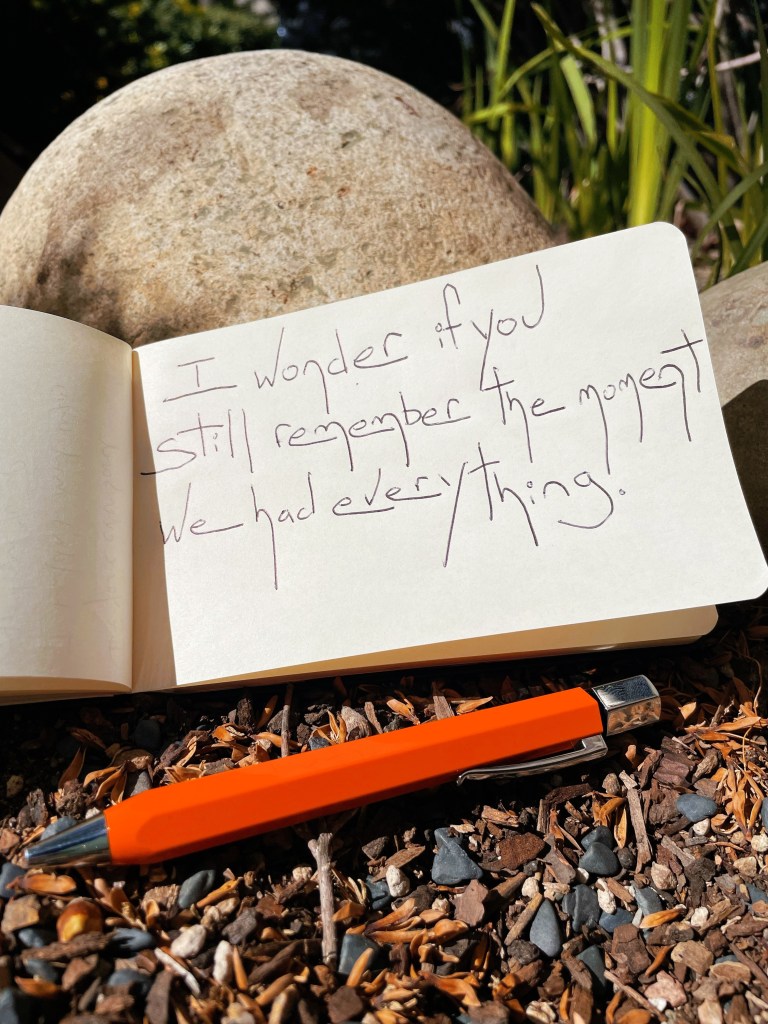 I wonder if you
still remember the moment
we had everything.